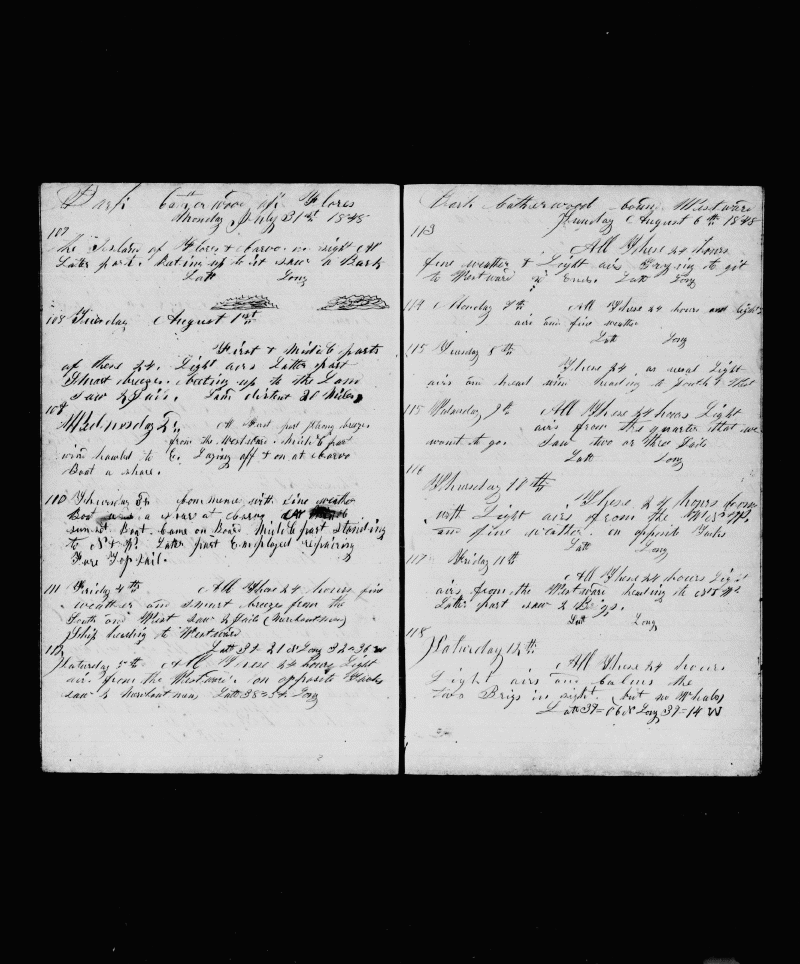 Bark Catherwood off Flores
Monday July 31st 1848
107
The Islands of Flores & Corvo in sight All
Latter part. Beating up to it saw a Bark
Latt Long
108 Tuesday August 1st
First & Middle parts
of these 24. Light airs Latter part
Smart breezes. beating up to the Land
Saw 2 Sails. Land distant 20 Miles
109
Wednesday 2
At First part strong breezes
from the Westward. Middle part
wind hauled to E. Laying off & on at Corvo
Boat a shore.
110 Thursday 3 Commences with fine weather
Boat a shore at Corvo
sunset Boat Came on Board Middle part standing
to N & W. Latter part Employed repairing
Fore Top Sail.
111 Friday 4th All These 24 hours fine
weather and smart breezes from the
South and West saw 2 Sails (Merchantmen)
Ship heading to Westward
112 Latt 39 21 N Long 32=36 W
Saturday 5th All These 24 hours Light
airs from the Westward. on opposite Tacks
saw 2 merchant men Latt 38=54 Long
Bark Catherwood bound Westward
Sunday August 6th 1848
113
All These 24 hours
fine weather & Light airs Trying to get
to Westward Ends Latt Long
114 Monday 7th All These 24 hours light
airs and fine weather
Latt Long
115 Tuesday 8th
These 24 as usual Light
airs and head wind heading to South & West
115 Wednesday 9th All These 24 hours Light
airs from the quarter that we
want to go. Saw two or three Sails
Latt Long
116
Thursday 10th
These 24 hours
with Light airs from the
and fine weather. on opposite Tacks
Latt Long
117 Friday 11th
All These 24 hours Light
airs from the Westward heading to
Latter part saw 2 Brigs.
Latt Long
118
Saturday 12th
All These 24 hours
Light airs and Calms the
two Brigs in sight. but no Whales
Latt 39=06 N Long 39=14 W